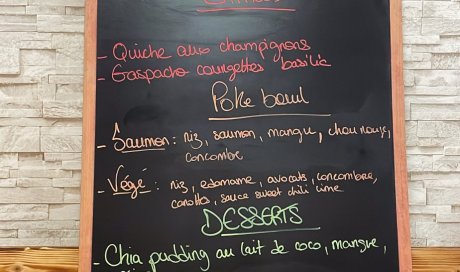 - Quiche aux champignons
- Gaspacho courgettes basilic
Poke bowl
- Saumon : riz, saumon, mangue, chou rouge,
concombre
- Végé : riz, edamame, avocats, concombre,
carottes, sauce sweet chili lime
DESSERTS
- Chia pudding au lait de coco, mangue,